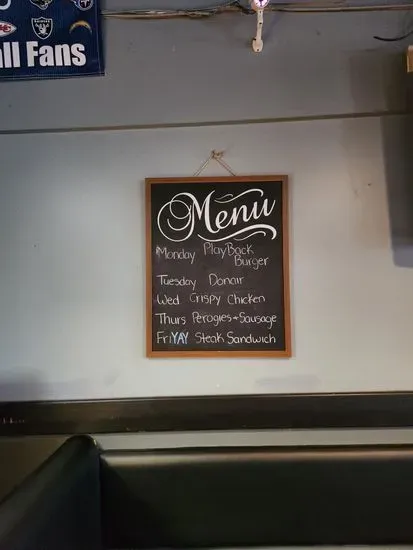 ll Fans
Menu
Monday PlayBack
Burger
Tuesday Donair
Wed Crispy Chicken
Thurs Perogies + Sausage
FriYAY Steak Sandwich